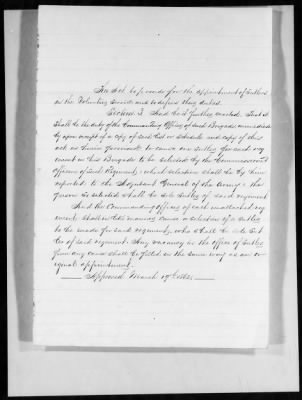 An Act to provide for the appointment of Sutlers
in the Volunteer Service and to define their duties.
Section 3. And be it further enacted. That it
shall be the duty of the Commanding Officer of said Brigade immediate
ly upon receipt of a copy of said list or schedule and copy of this
act as herein provided, to cause one sutler for each reg
iment in his Brigade to be selected by the Commissioned
officers of said Regiment, which selection shall be by him
reported to the Adjutant General of the Army; the
person so selected shall be sole sutler of said regiment
And the Commanding officer of each unattached reg
iment shall in like manner cause a selection of a sutler
to be made for said regiment, who shall be sole Sut
ler of said regiment. Any vacancy in the office of sutler
from any cause shall be filled in the same way as an or
iginal appointment.
Approved March 19th 1862.